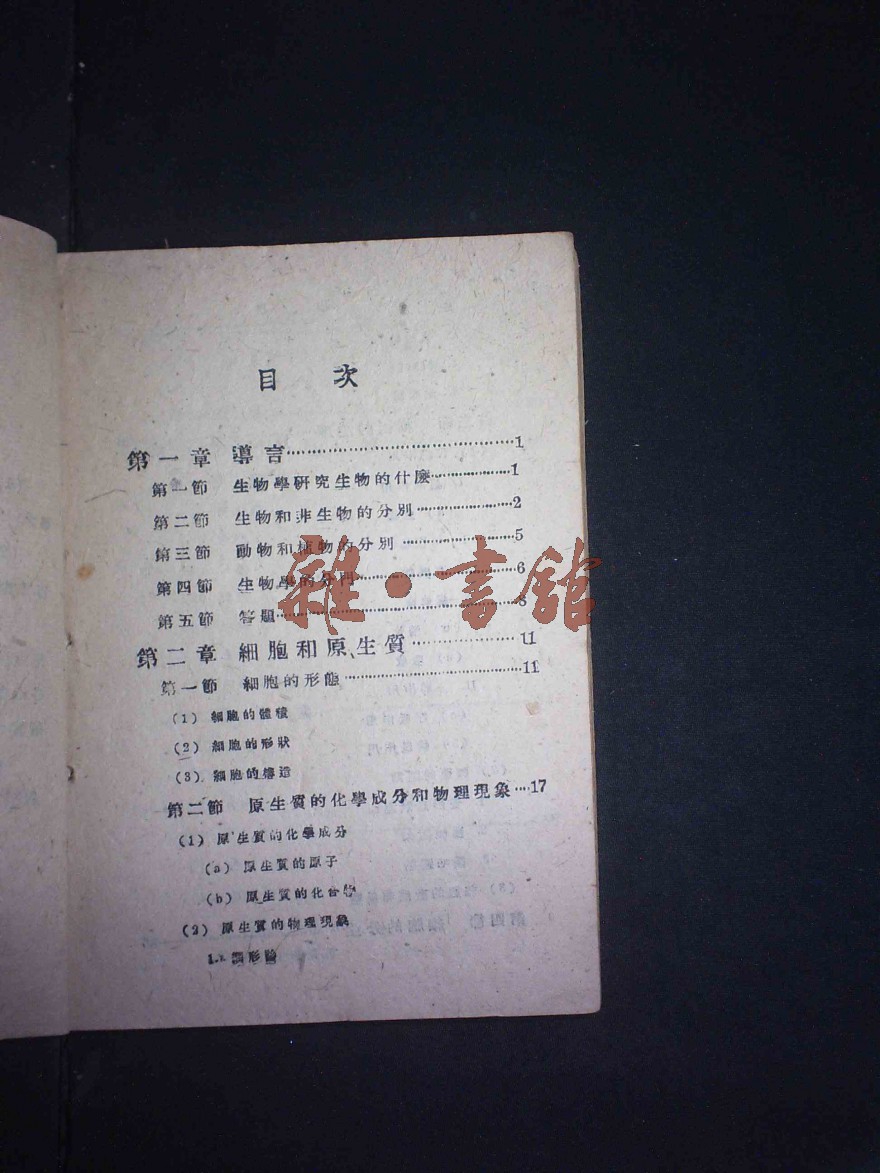 目 次
第一章 導言……………………………………1
第一節 生物學研究生物的什麼……………1
第二節 生物和非生物的分別………………2
第三節 動物和植物的分別…………………5
第四節 生物學的分門………………………6
第五節 答題…………………………………8
第二章 細胞和原生質………………11
第一節 細胞的形態…………………………11
(1) 細胞的體積
(2) 細胞的形狀
(3) 細胞的構造
第二節 原生質的化學成分和物理現象…17
(1) 原生質的化學成分
(a) 原生質的原子
(b) 原生質的化合物
(2) 原生質的物理現象
形論
雜·書館